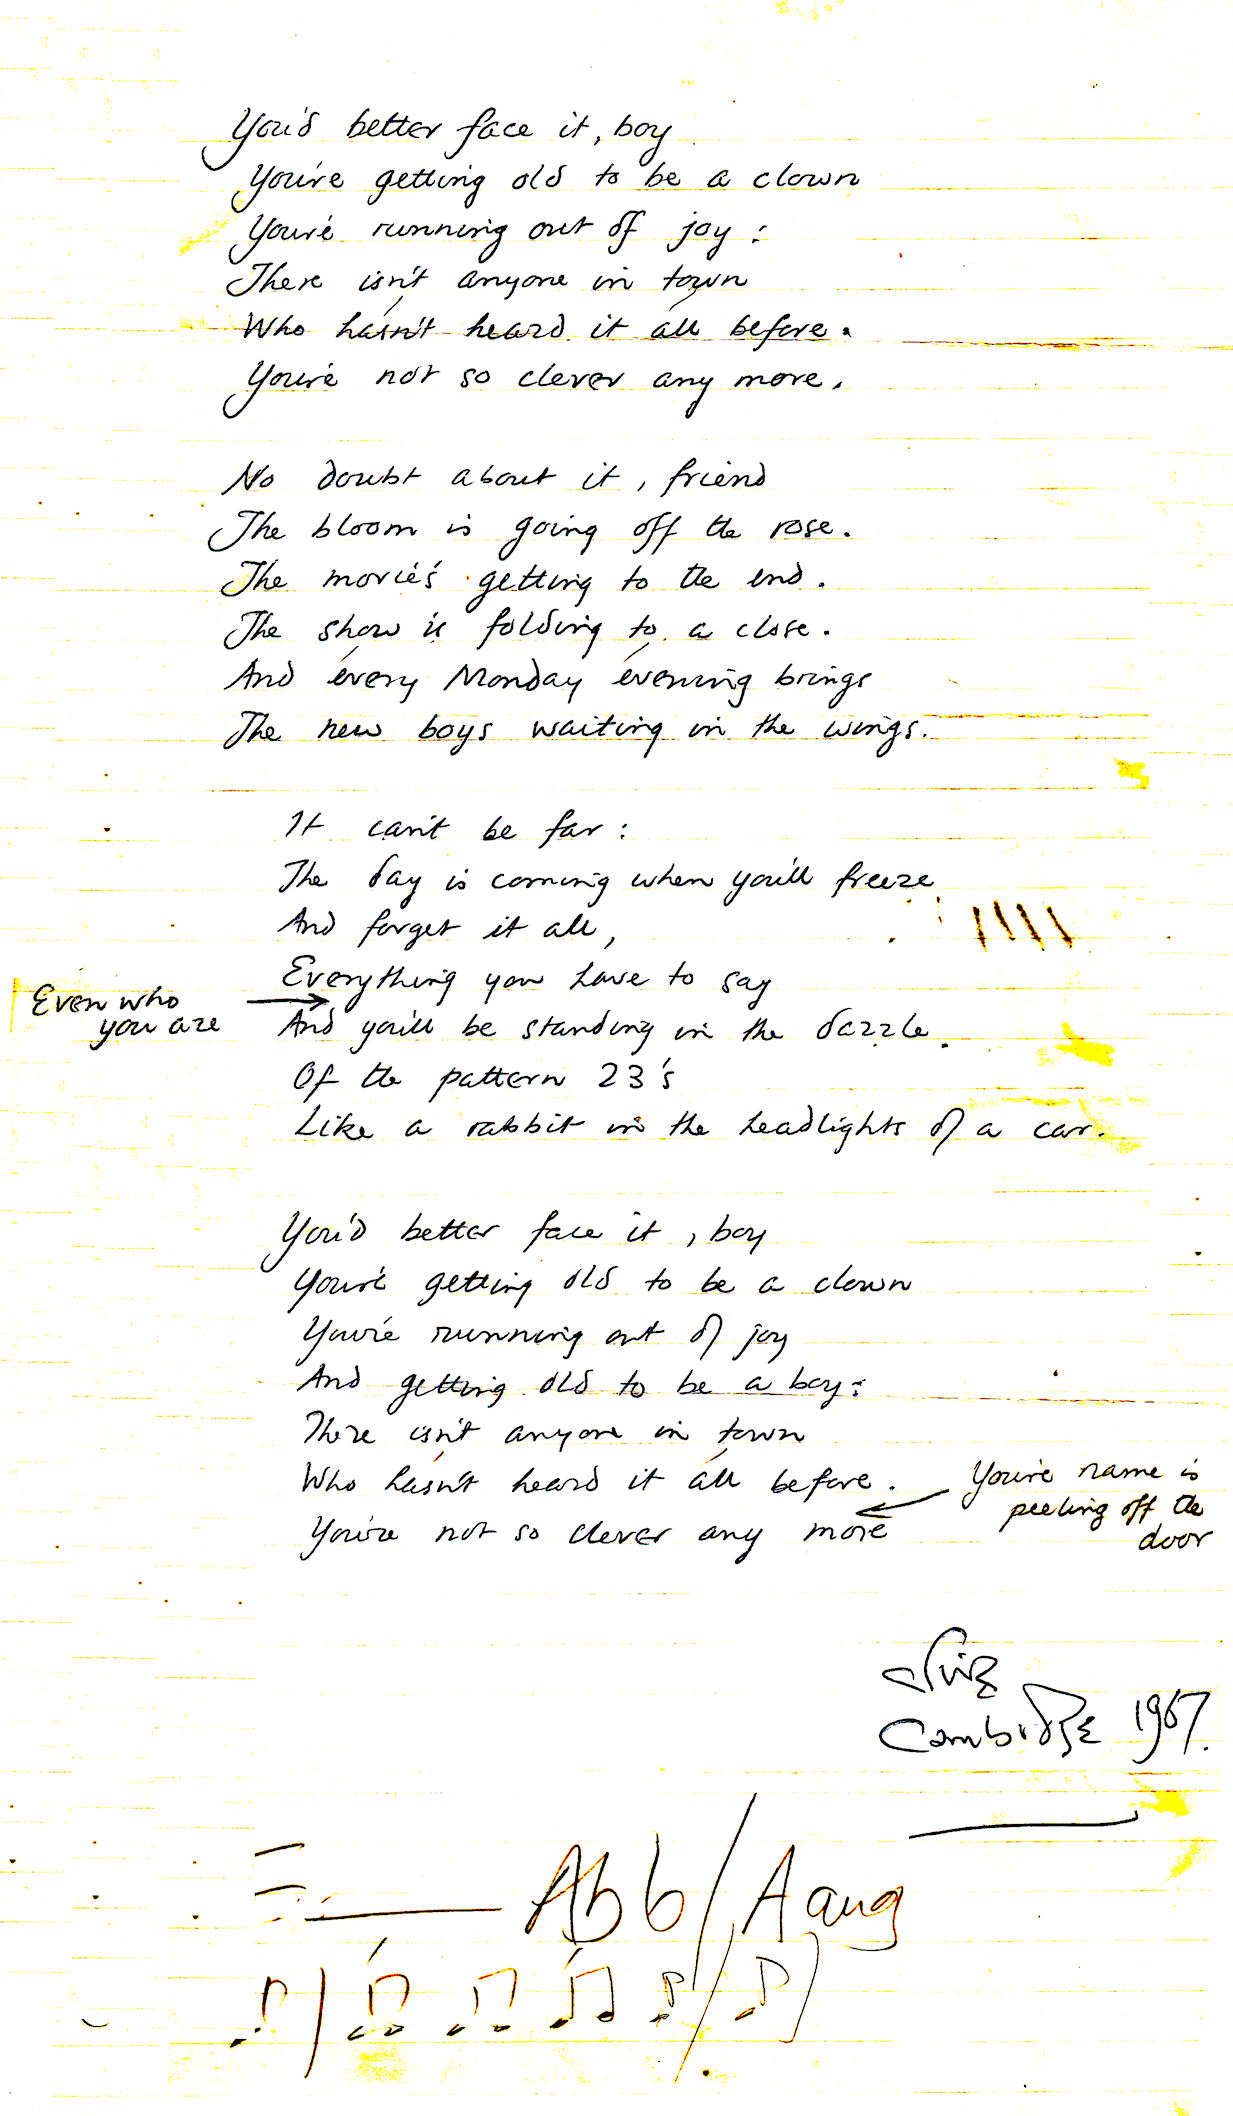 You'd better face it, boy
You're getting old to be a clown
You're running out of joy:
There isn't anyone in town
Who hasn't heard it all before.
You're not so clever any more.
No doubt about it, friend
The bloom is going off the rose.
The movie's getting to the end.
The show is folding to a close.
And every Monday evening brings
The new boys waiting in the wings.
It can't be far:
The day is coming when you'll freeze
And forget it all,
Everything you have to say
Even who
you are
And you'll be standing in the dazzle
Of the pattern 23's
Like a rabbit in the headlights of a car.
You'd better face it, boy
You're getting old to be a clown
You're running out of joy
And getting old to be a boy:
There isn't anyone in town
Who hasn't heard it all before.
You're name is
peeling off the
door
You're not so clever any more
Cambridge 1967.
Abb/Aaug